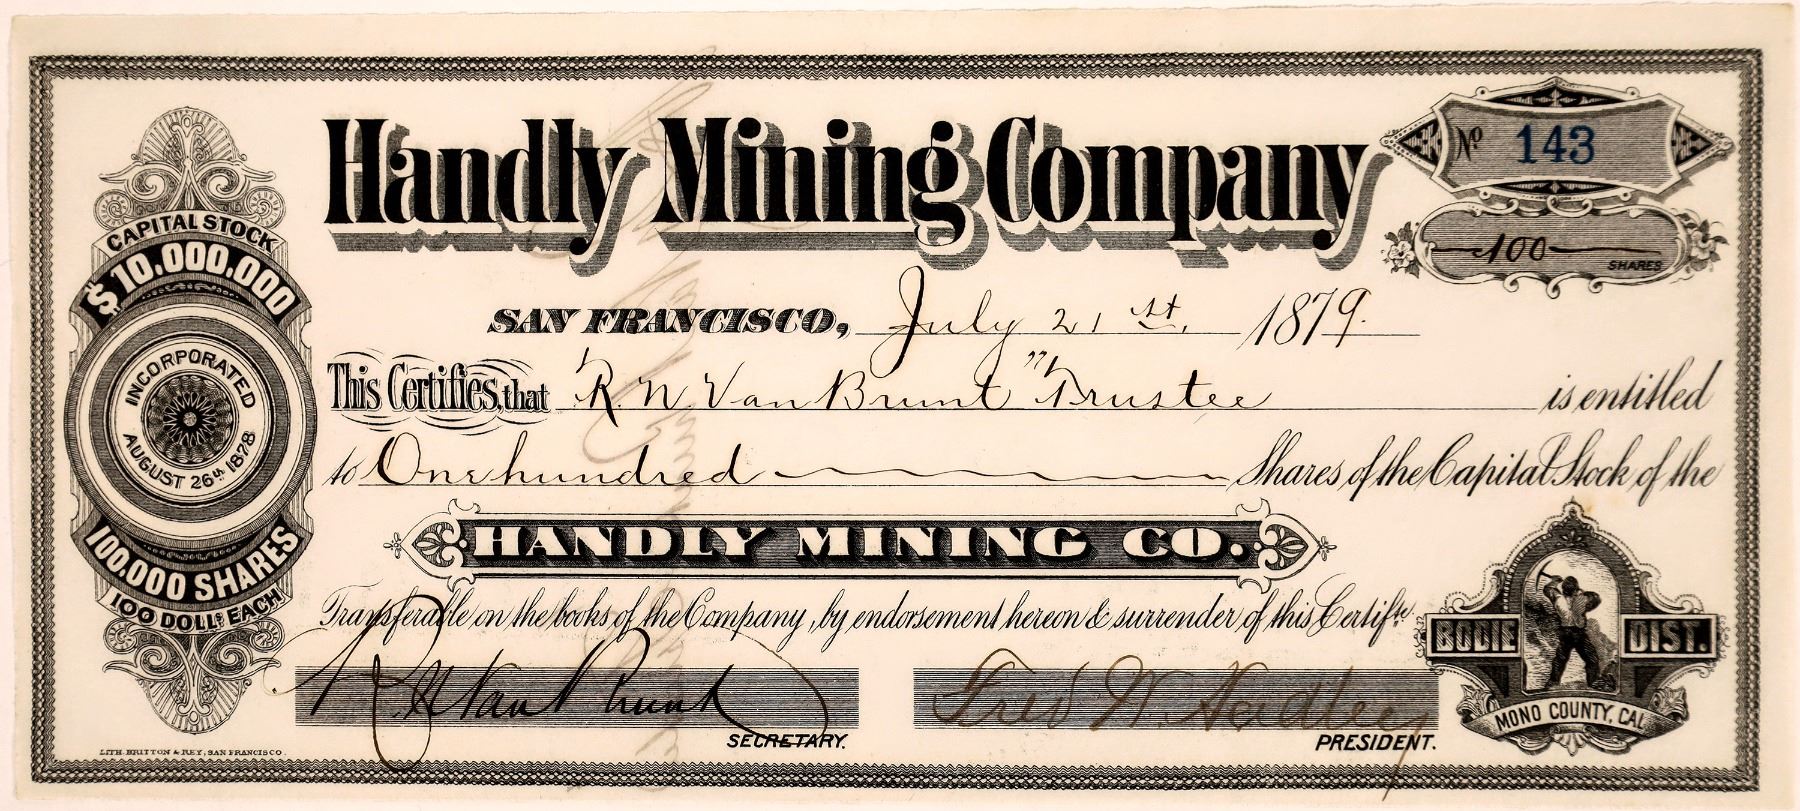 Handly Mining Company
No 143
100 SHARES
CAPITAL STOCK
$10.000.000
INCORPORATED
AUGUST 26th 1878
100.000 SHARES
100 DOLLS EACH
SAN FRANCISCO, July 21st, 1879.
This Certifies, that R. N. Van Brunt "Trustee" is entitled
to One hundred Shares of the Capital Stock of the
HANDLY MINING CO.
Transferable on the books of the Company, by endorsement hereon & surrender of this Certifte.
R. N. Van Brunt
SECRETARY.
Fred W. Hadley
PRESIDENT.
BODIE DIST.
MONO COUNTY, CAL
LITH. BRITTON & REY, SAN FRANCISCO.